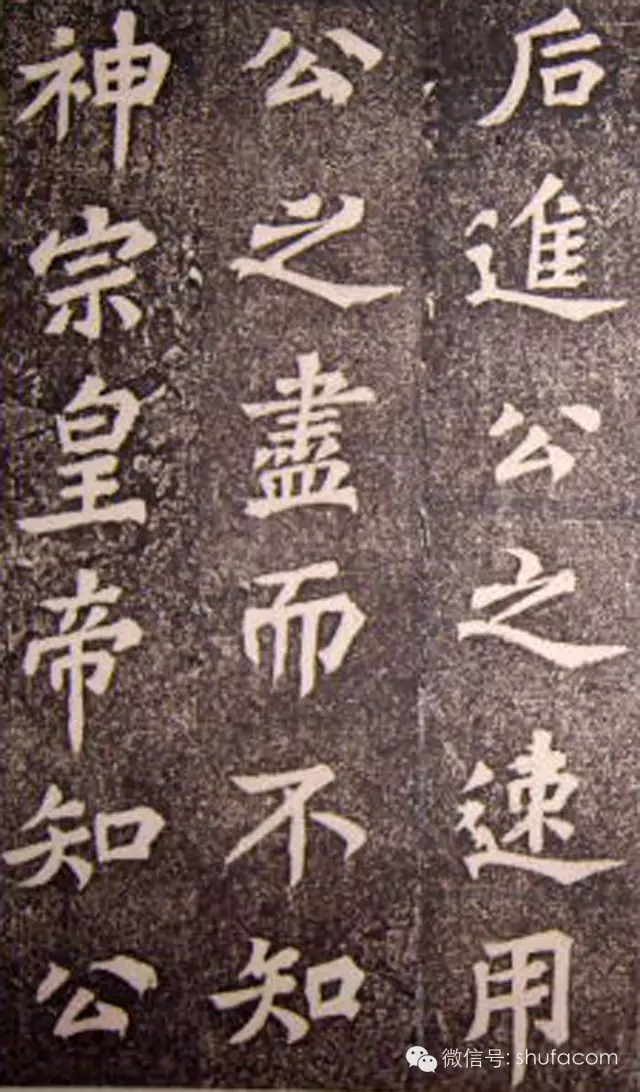 后進公之速用
公之盡而不知
神宗皇帝知公
微信号: shufacom